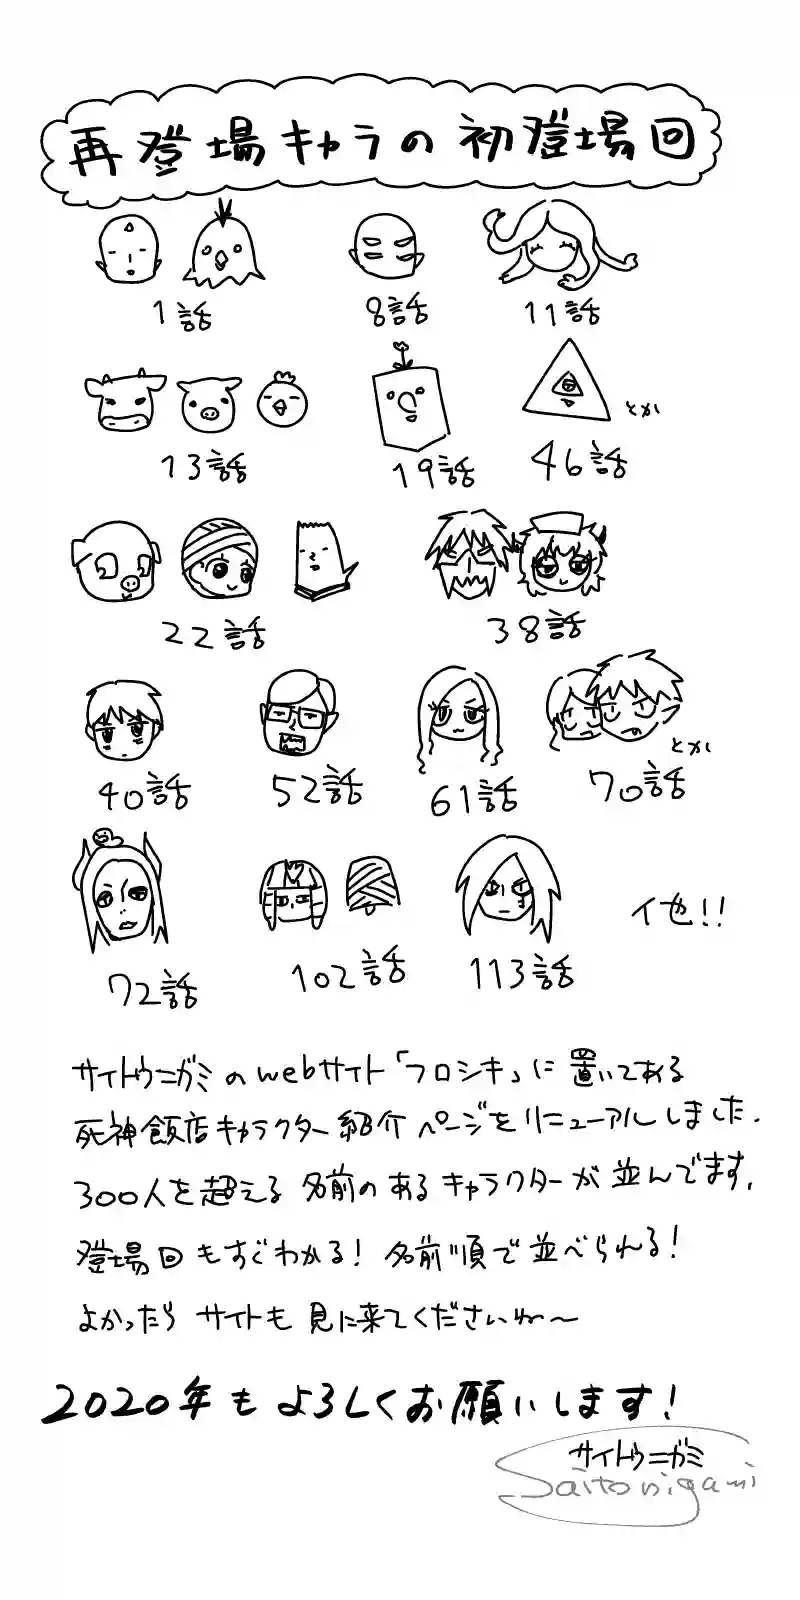 再登場キャラの初登場回
1話
8話
11話
13話
19話
46話
とか
22話
38話
40話
52話
61話
70話
とか
72話
102話
113話
他!!
サイトウニガミのwebサイト「フロシキ」に置いてある
死神飯店キャラクター紹介ページをリニューアルしました.
300人を超える名前のあるキャラクターが並んでます.
登場回もすぐわかる!名前順で並べられる!
よかったらサイトも見に来てくださいね〜
2020年もよろしくお願いします!
サイトウニガミ
Saitonigami